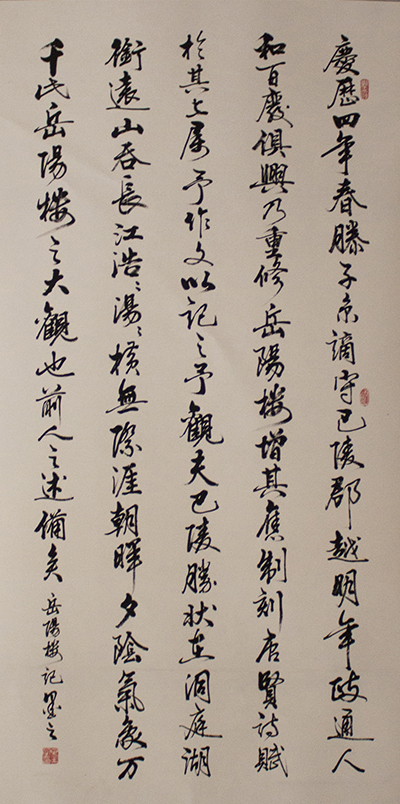 慶歷四年春滕子京謫守巴陵郡越明年政通人
和百廢俱興乃重修岳陽樓增其舊制刻唐賢詩賦
於其上属予作文以記之予觀夫巴陵勝狀在洞庭湖
銜遠山吞長江浩〻湯〻橫無際涯朝暉夕陰氣象万
千此岳陽樓之大觀也前人之述備矣
岳陽樓記